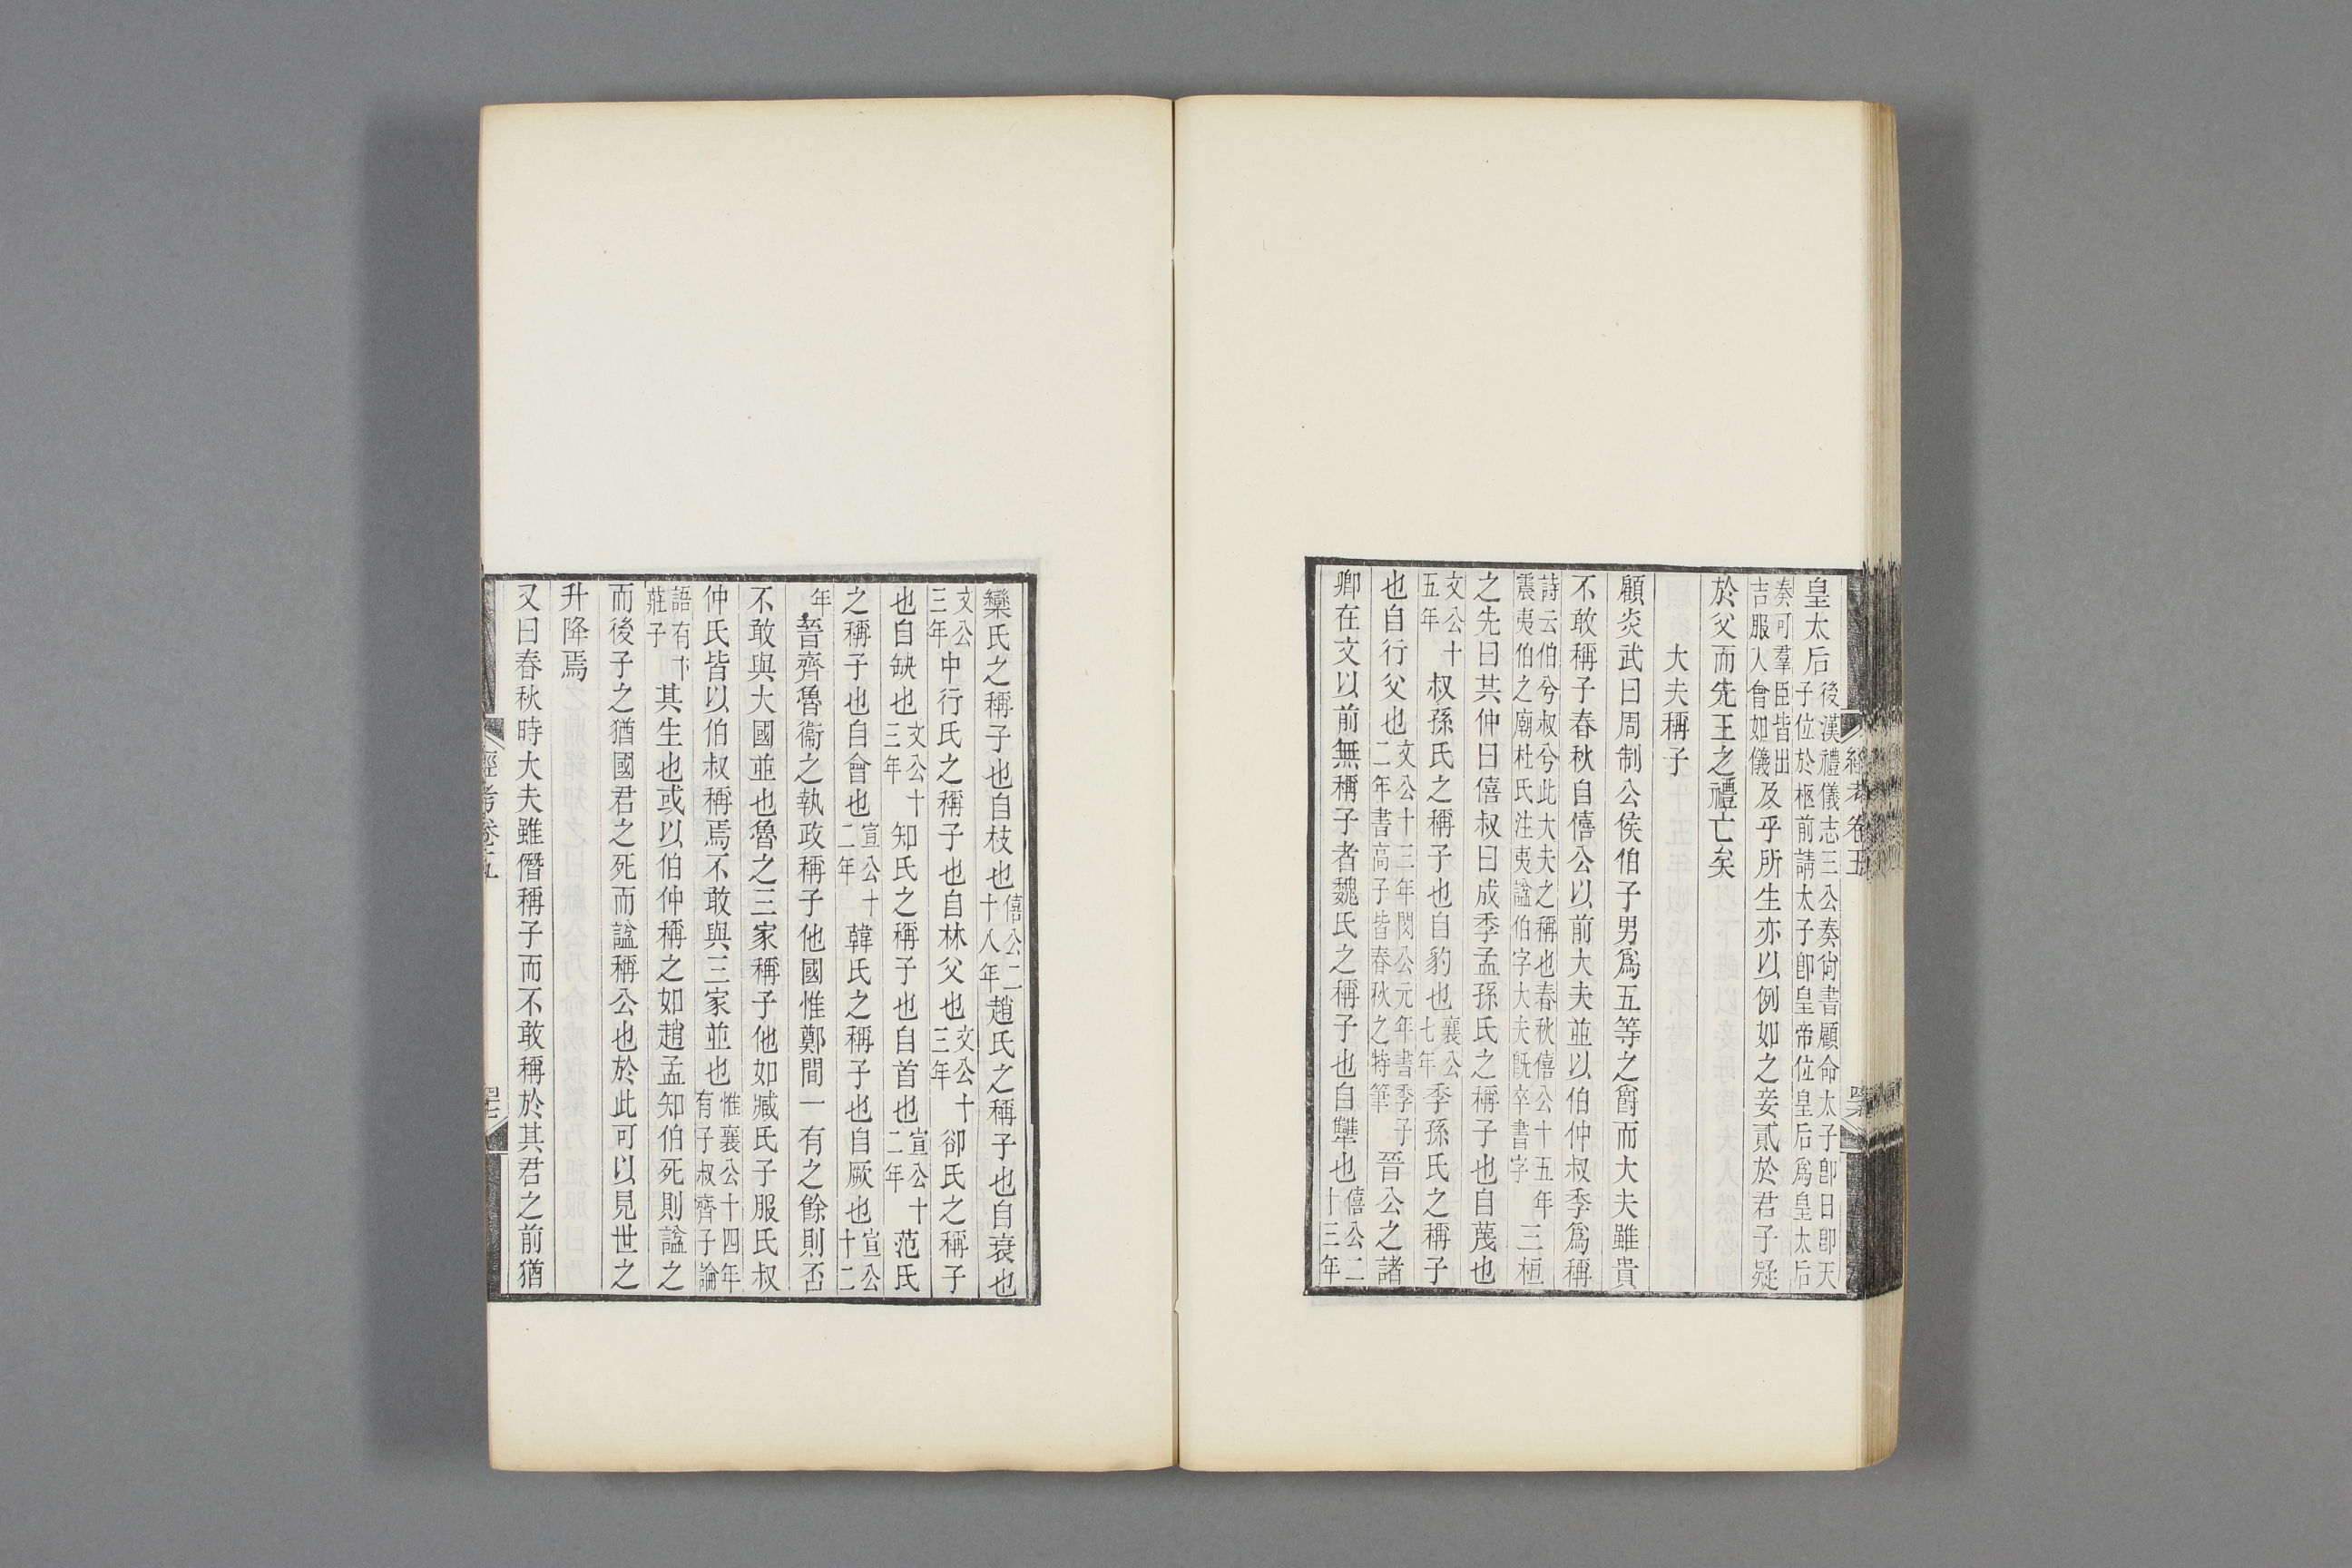 皇太后後漢禮儀志三公奏尙書顧命太子卽日卽天子位於柩前請太子卽皇帝位皇后爲皇太后
奏可羣臣皆出吉服入會如儀及乎所生亦以例如之妾貳於君子疑
於父而先王之禮亡矣
大夫稱子
顧炎武曰周制公侯伯子男爲五等之爵而大夫雖貴
不敢稱子春秋自僖公以前大夫並以伯仲叔季爲稱
詩云伯兮叔兮此大夫之稱也春秋僖公十五年震夷伯之廟杜氏注夷諡伯字大夫旣卒書字三桓
之先曰共仲曰僖叔曰成季孟孫氏之稱子也自蔑也
文公十五年叔孫氏之稱子也自豹也襄公七年季孫氏之稱子
也自行父也文公十三年閔公元年書季子二年書高子皆春秋之特筆晉公之諸
卿在文以前無稱子者魏氏之稱子也自犫也僖公二十三年
欒氏之稱子也自枝也僖公二十八年趙氏之稱子也自衰也
文公三年中行氏之稱子也自林父也文公十三年郤氏之稱子
也自缺也文公十三年知氏之稱子也自首也宣公十二年范氏
之稱子也自會也宣公十二年韓氏之稱子也自厥也宣公十二
年晉齊魯衞之執政稱子他國惟鄭間一有之餘則否
不敢與大國並也魯之三家稱子他如臧氏子服氏叔
仲氏皆以伯叔稱焉不敢與三家並也惟襄公十四年有子叔齊子論
語有卞莊子其生也或以伯仲稱之如趙孟知伯死則諡之
而後子之猶國君之死而諡稱公也於此可以見世之
升降焉
又曰春秋時大夫雖僭稱子而不敢稱於其君之前猶
經考卷五